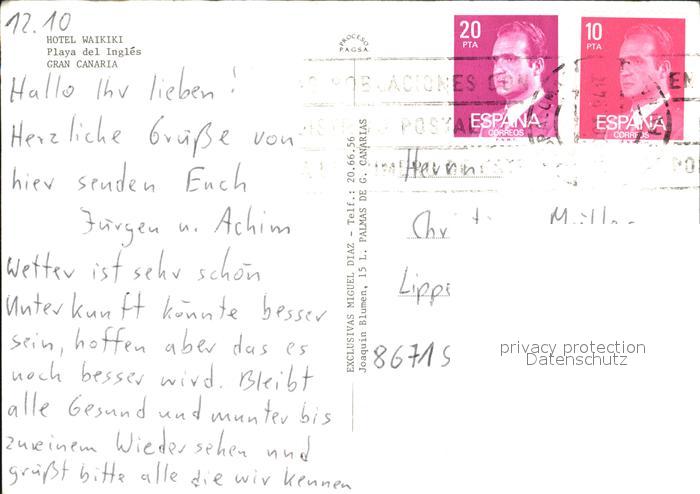 12.10
HOTEL WAIKIKI
Playa del Inglés
GRAN CANARIA
Hallo Ihr lieben!
Herzliche Grüße von
hier senden Euch
Jürgen u. Achim
Wetter ist sehr schön
Unterkunft könnte besser
sein, hoffen aber das es
noch besser wird. Bleibt
alle Gesund und munter bis
zu einem Wiedersehen und
grüßt bitte alle die wir kennen
PROCESO
PAGSA
EXCLUSIVAS MIGUEL DIAZ - Telf.: 20.66.56
Joaquin Blumen, 15 L. PALMAS DE G. CANARIAS
20
PTA
ESPAÑA
CORREOS
10
PTA
ESPAÑA
CORREOS
POBLACIONES CON
POSTAL
Herrn
Lippe
8671
privacy protection
Datenschutz